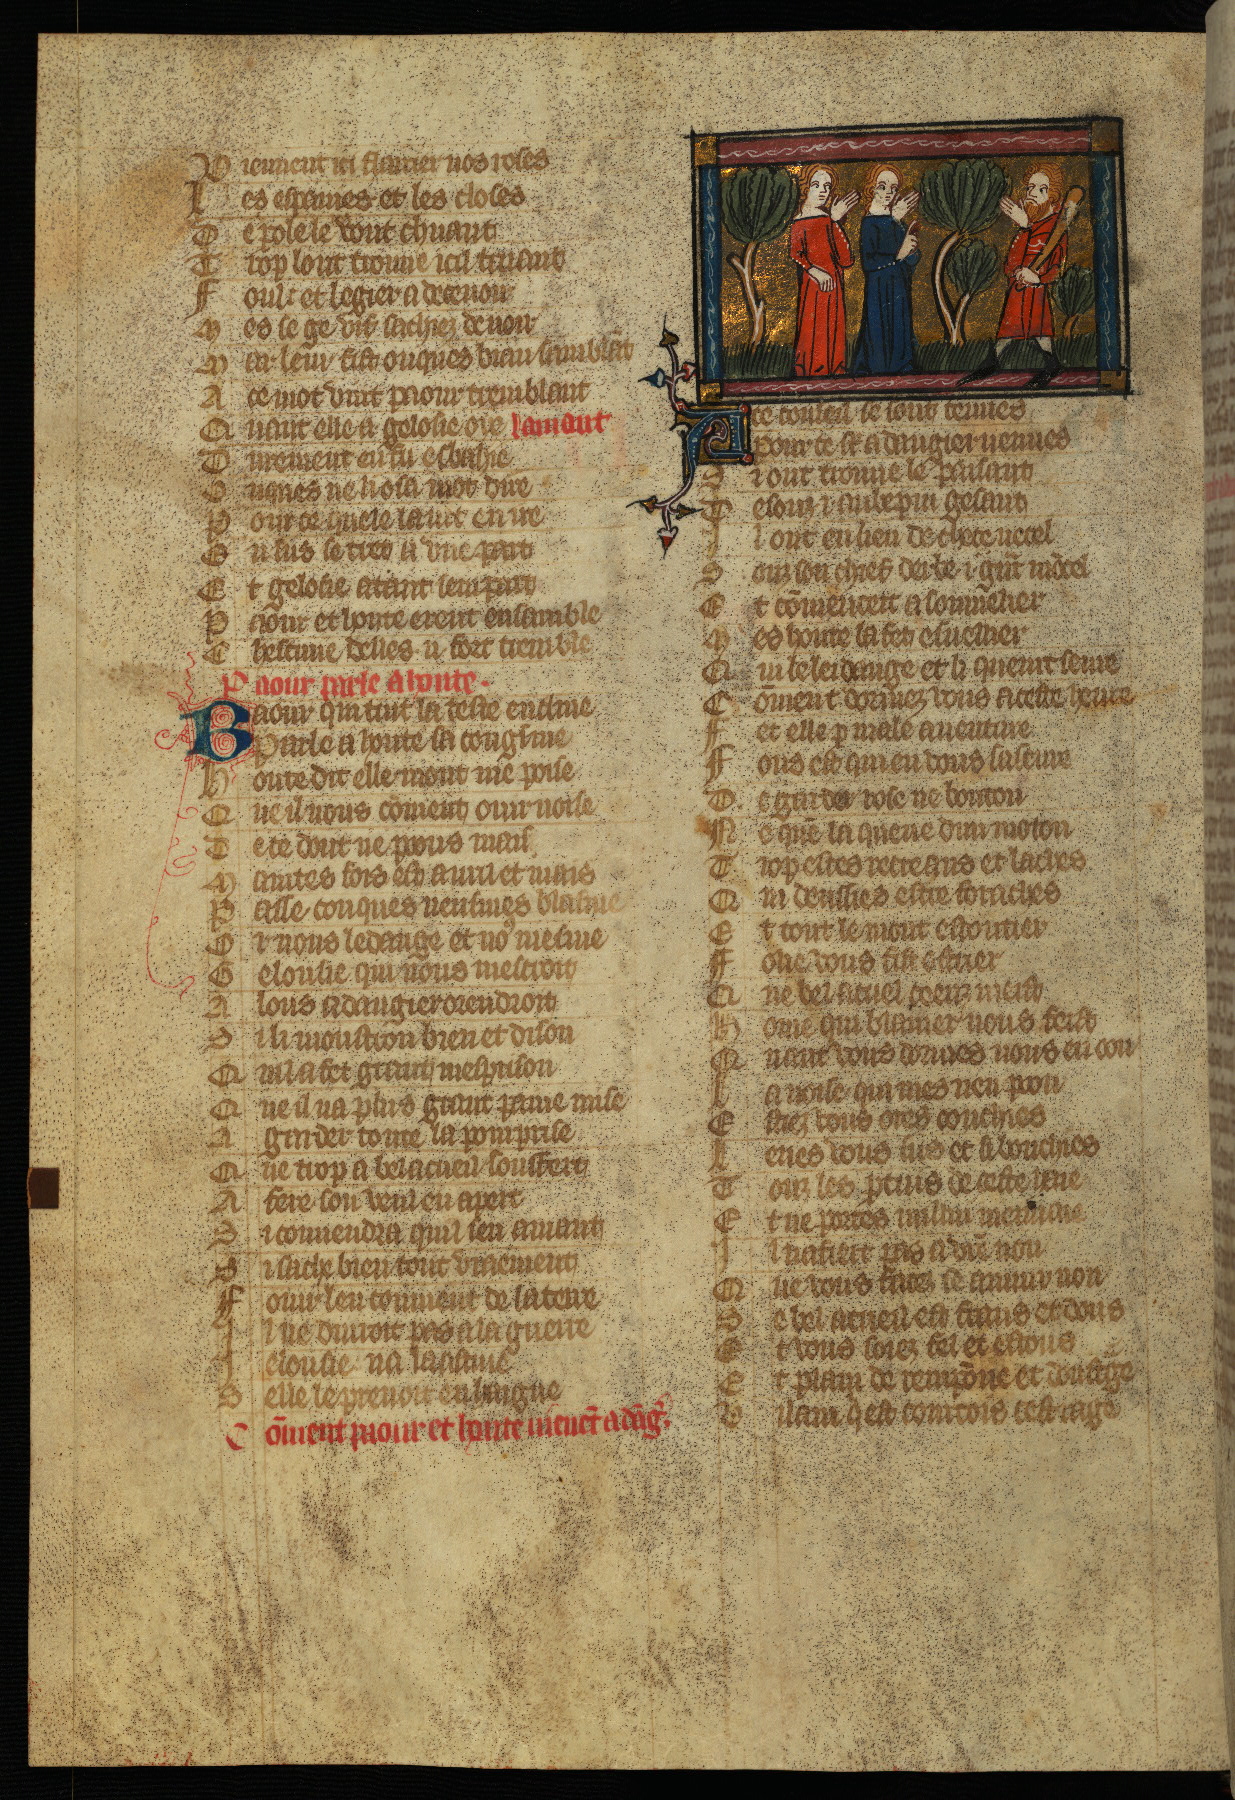 V iennent ici flairier nos roses
L es espanies et les closes
D e pole le vont chuant
T rop lont trouue icil truant
F oult et legier a deceuoir
M es se ge vif sachiez de uoir
M ar leur fist onques biau semblant
A ce mot vint paour tremblant
Q uant elle a gelosie oye lamant
D urement en fu esbahie
O nques ne li osa mot dire
P our ce quele la uit en ire
E n sus se tret a vne part
E t gelosie atant sem part
P aour et honte erent ensamble
C hescune delles fort tremble
P aour parle a honte.
P aour qui tint la teste encline
Parle a honte sa cousine
H onte dit elle mont me poise
Q ue il nous couient ouir noise
D e ce dont ne poons mais
M aintes fois est auril et mais
P asse conques neusmes blasme
O r nous ledange et nous mesme
G elousie qui nous mescroit
A lons a dangier orendroit
S i li moustron bien et dison
Q uil a fet grant mesprison
Q ue il na plus grant paine mise
A garder toute la pourprise
Q ue trop a belacueil souffert
A fere son veul en apert
S i conuendra quil sen amant
S i sache bien tout vraiement
F ouir len couuient de la terre
I l ne duroit pas a la guerre
I elousie na laastine
S elle le prenoit en haigne
C ōment paour et honte uienēt a dāg̃.
A ce conseil se sont tenues
pour ce st a dangier uenues
S i ont trouue le paisant
D esouz i aubepin gesant
I l ont en lieu de checeuecel
S ouz son chief derbe i gūt mōcel
E t cōmencoit a someillier
M es honte la fet esueillier
Q ui le leidange et li queurt seure
C ōment dormez vous a ceste heure
F et elle p male auenture
F ous est qui en vous sasseure
D e garder rose ne bouton
N e quē la queue dun moton
T rop estes recreans et laches
Q ui deussies estre farouches
E t tout le mont estoutier
F olie vous fist otrier
Q ue bel acueil ceenz meist
H ome qui blamer nous feist
Q uant vous dormes nous en oon
L a noise qui mes nen poon
E stiez vous ores couchies
L eues vous sus et si bouchies
T ouz les ptuis de ceste haie
E t ne portes nullui menaie
I l nafiert pas a vrē non
Q ue vous faciez se anuiz non
S e bel acueil est frans et dous
E t vous soiez fel et estous
E t plain de rempōne et doutāge
V ilain q̄ est courtois cest rage